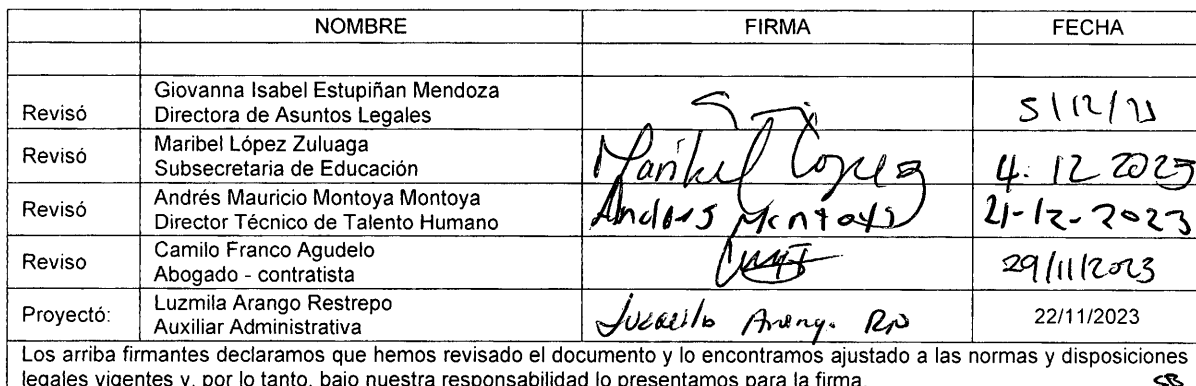 NOMBRE FIRMA FECHA
Giovanna Isabel Estupiñan Mendoza
Revisó Directora de Asuntos Legales 5/12/23
Maribel López Zuluaga
Revisó Subsecretaria de Educación Maribel López 4. 12 2023
Andrés Mauricio Montoya Montoya
Revisó Director Técnico de Talento Humano Andrés Montoya -12-2023
Camilo Franco Agudelo
Reviso Abogado - contratista 29/11/2023
Luzmila Arango Restrepo
Proyectó: Auxiliar Administrativa Arang. 22/11/2023
Los arriba firmantes declaramos que hemos revisado el documento y lo encontramos ajustado a las normas y disposiciones
legales vigentes y, por lo tanto, bajo nuestra responsabilidad lo presentamos para la firma.